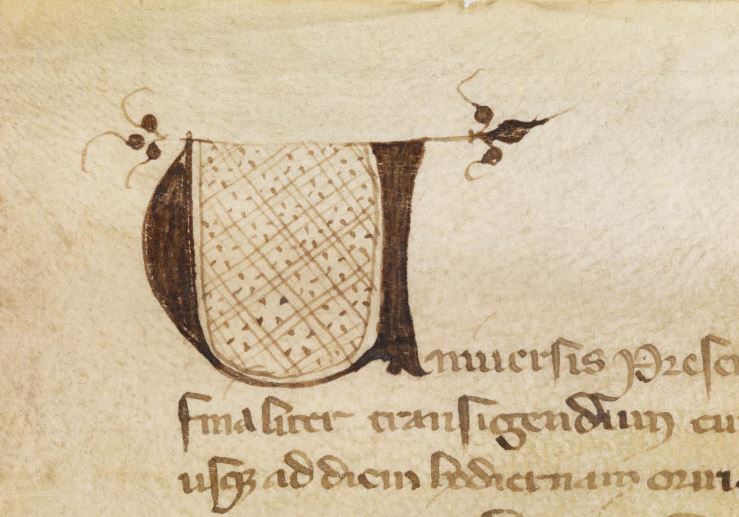 Uniuersis Presen
finaliter transigendum cu
usq ad diem hodiernam